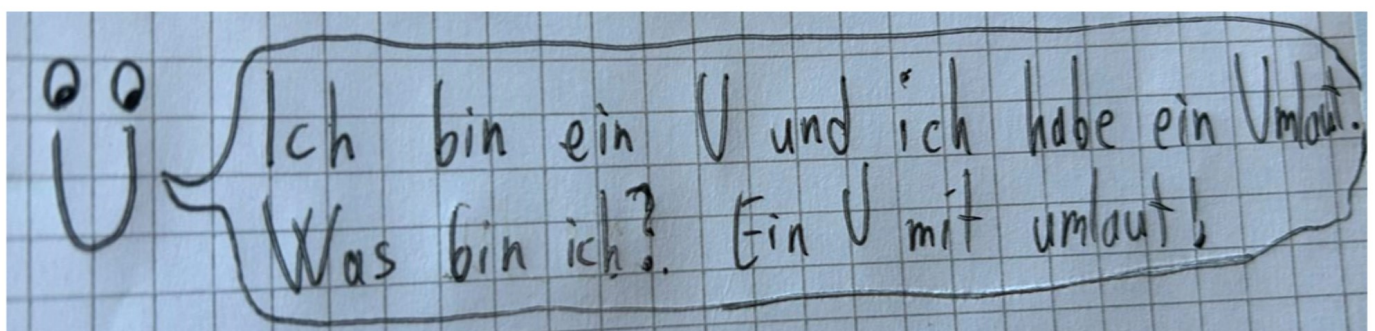 Ü
Ich bin ein U und ich habe ein Umlaut.
Was bin ich? Ein U mit umlaut!